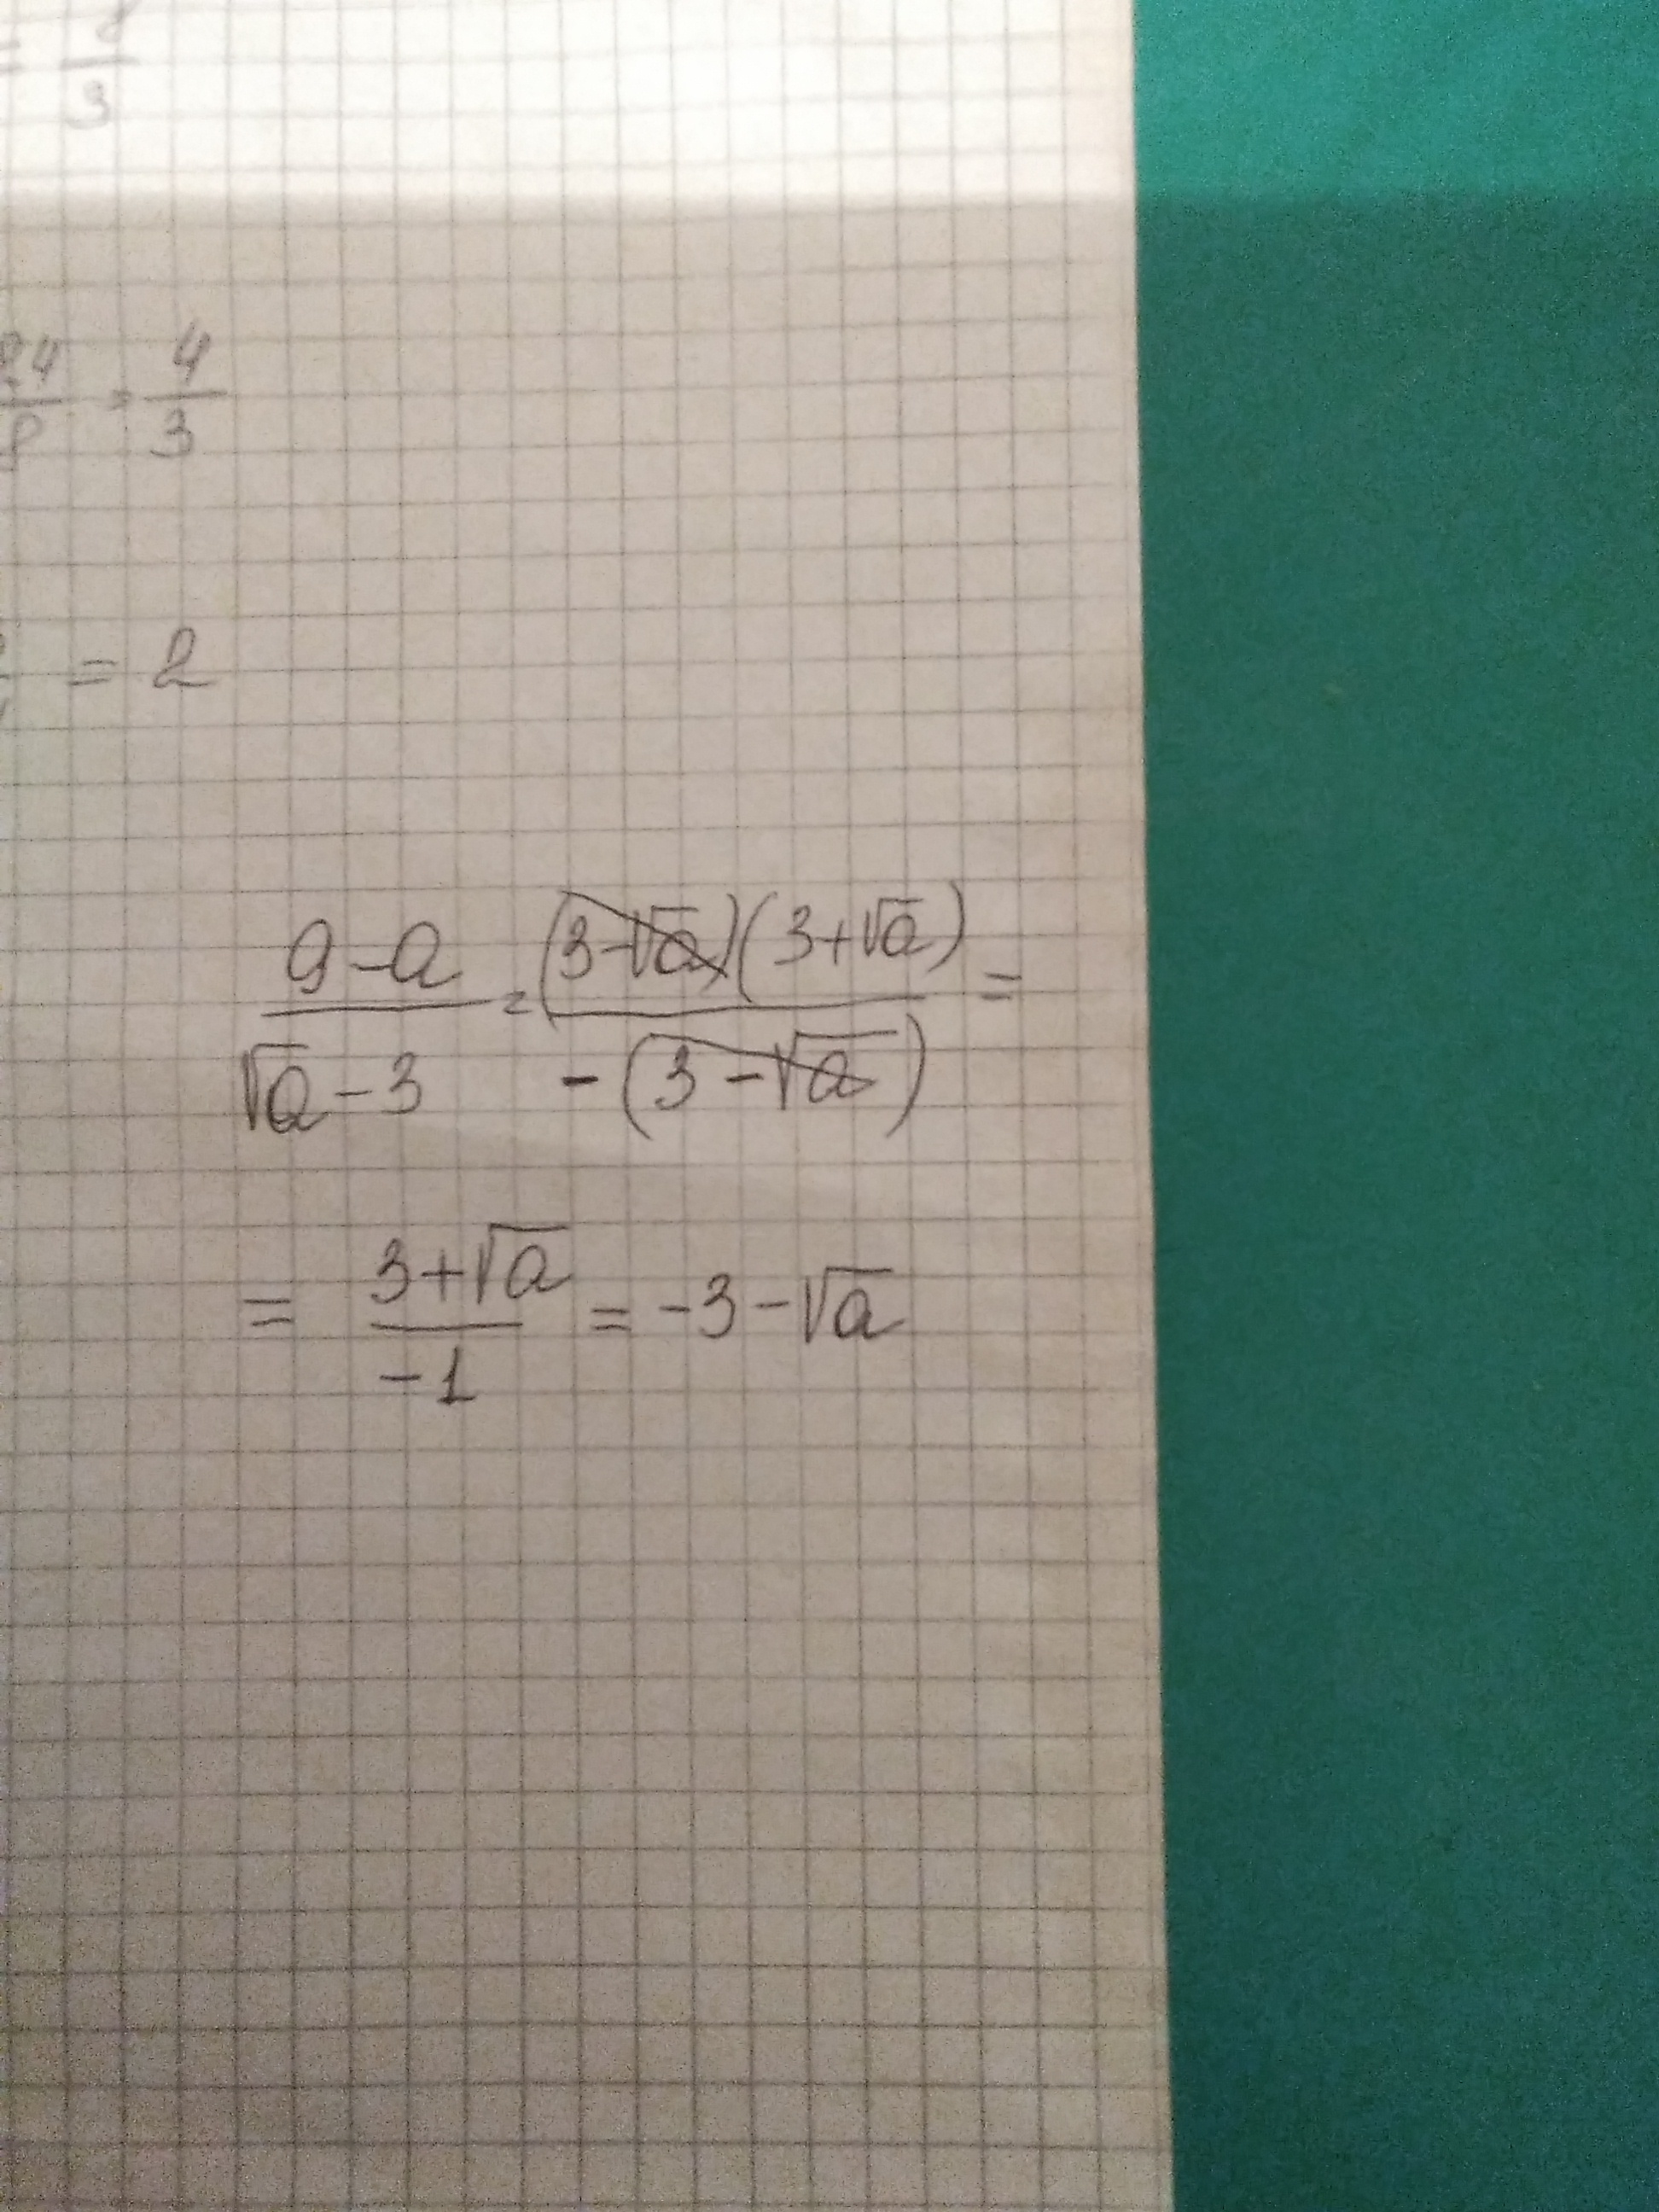 = /3
/ = 4/3
= 2
(9-a)/(√a-3) = ((3-√a)(3+√a))/(-(3-√a)) =
= (3+√a)/(-1) = -3-√a